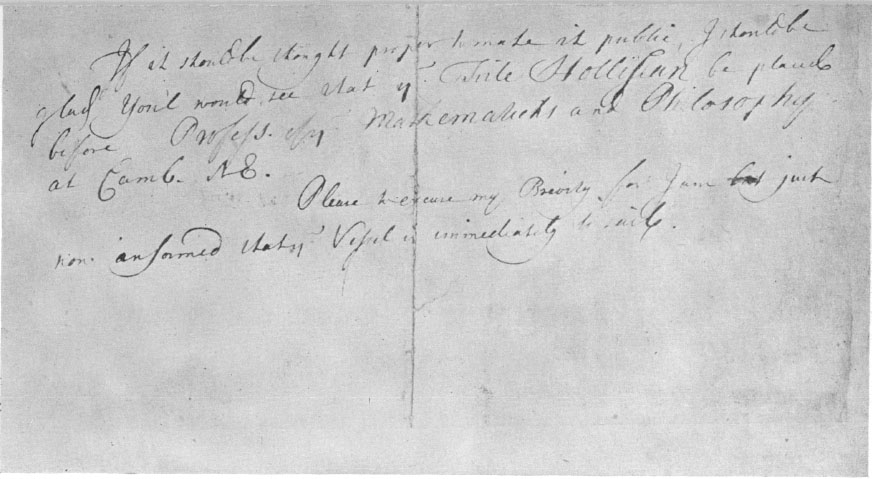 If it should be thought proper to make it public, I should be
glad You'l would see that yᵉ Title Hollisian be placed
before Profess. of yᵉ Mathematicks and Philosophy
at Camb. N E.
Please to excuse my Brevity for I am but just
now informed that yᵉ Vessel is immediately to sail.